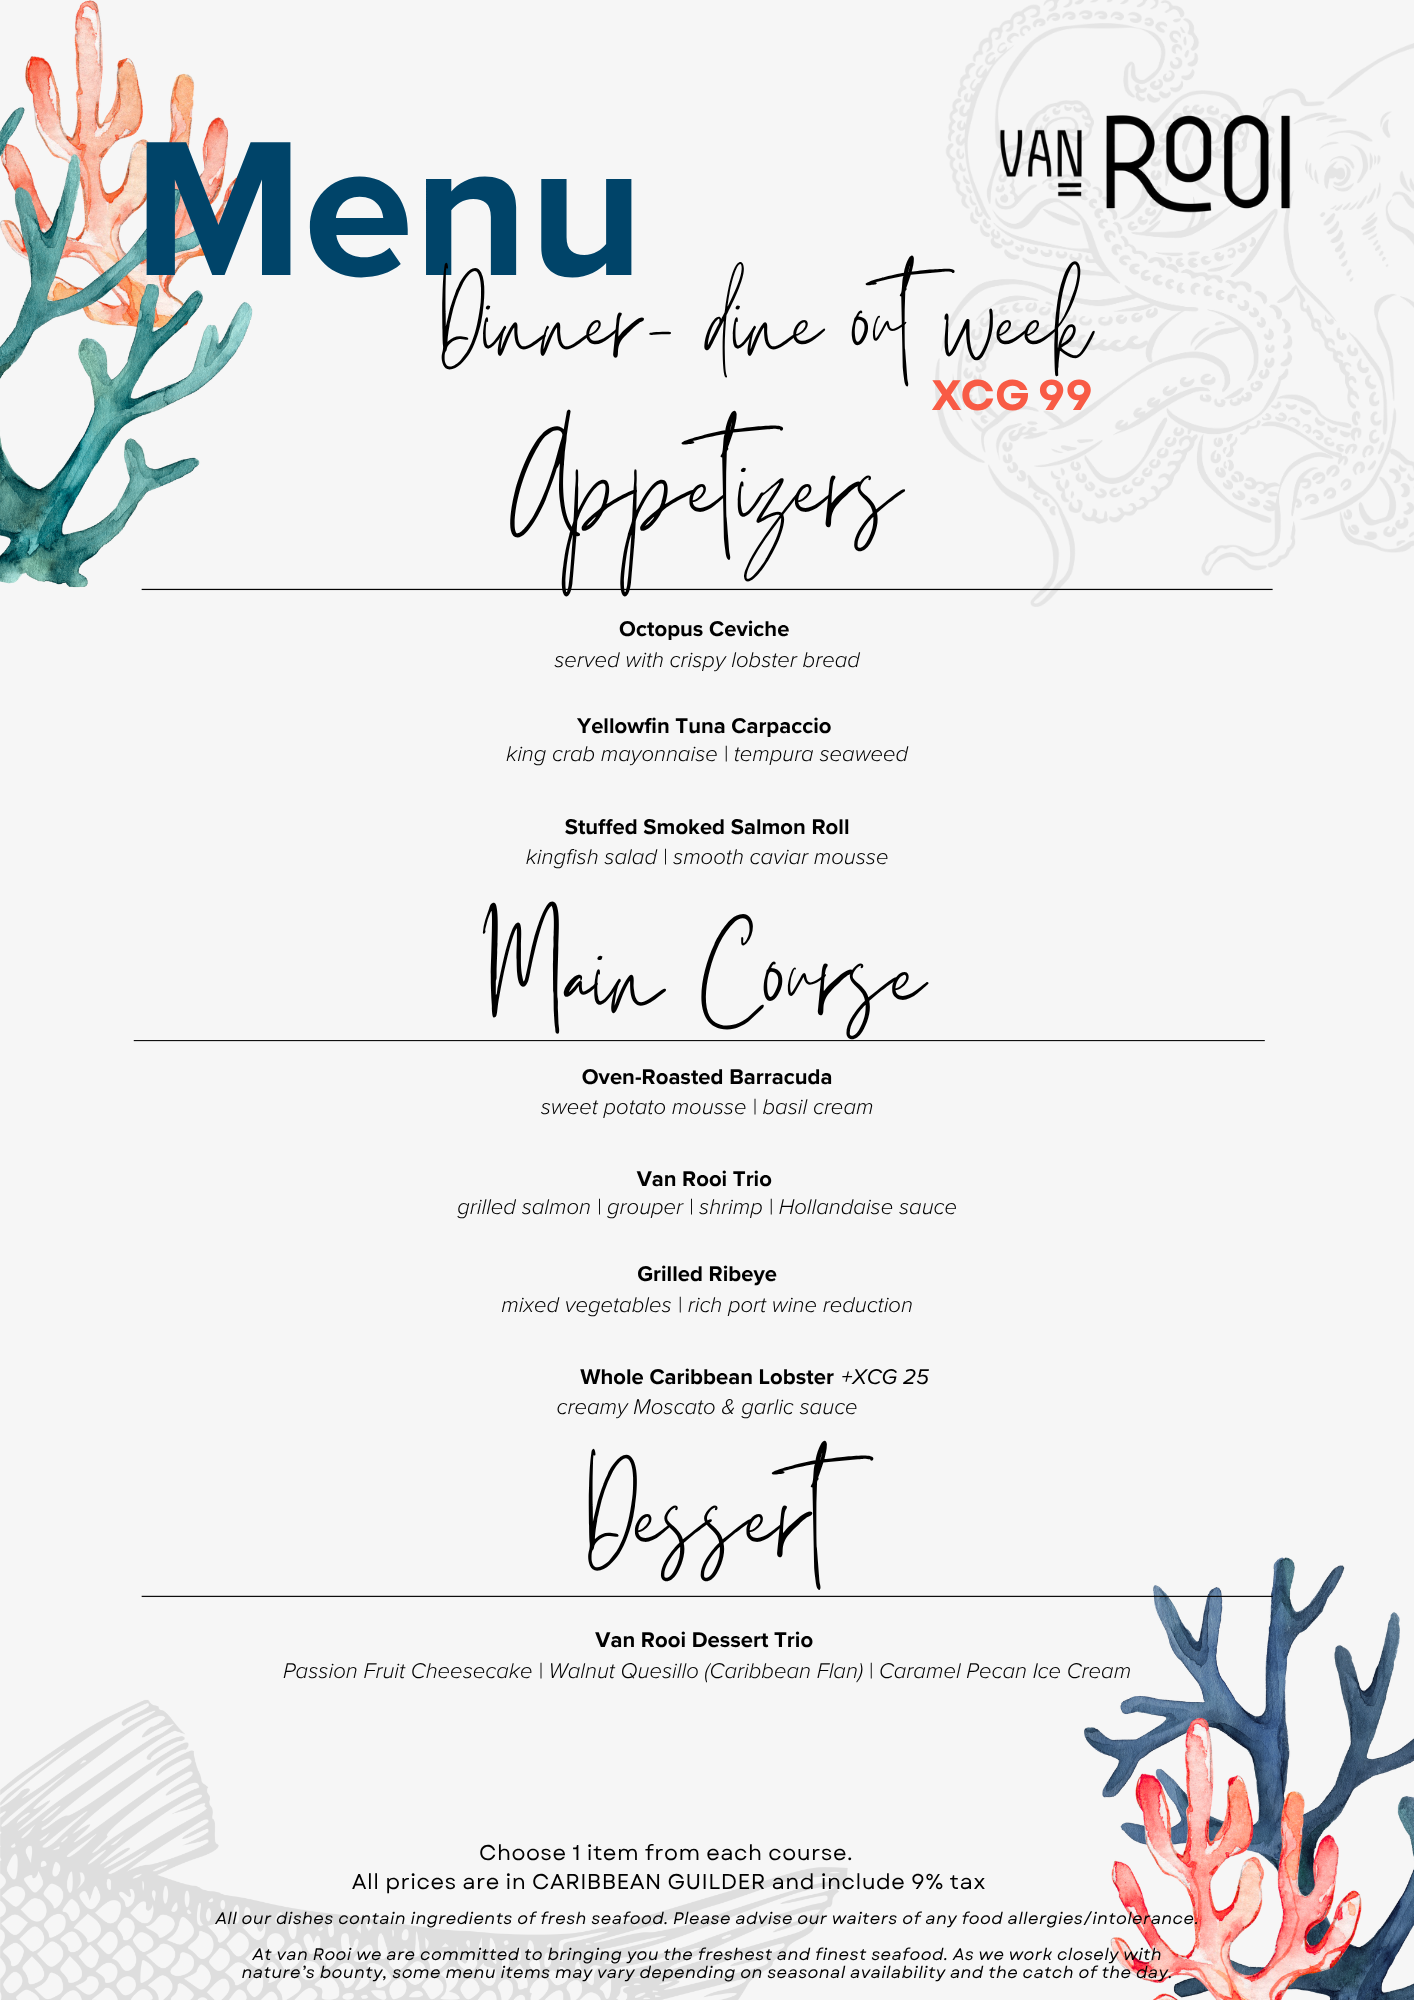 VAN ROOI
Menu
Dinner- dine out week
XCG 99
Appetizers
Octopus Ceviche
served with crispy lobster bread
Yellowfin Tuna Carpaccio
king crab mayonnaise | tempura seaweed
Stuffed Smoked Salmon Roll
kingfish salad | smooth caviar mousse
Main Course
Oven-Roasted Barracuda
sweet potato mousse | basil cream
Van Rooi Trio
grilled salmon | grouper | shrimp | Hollandaise sauce
Grilled Ribeye
mixed vegetables | rich port wine reduction
Whole Caribbean Lobster +XCG 25
creamy Moscato & garlic sauce
Dessert
Van Rooi Dessert Trio
Passion Fruit Cheesecake | Walnut Quesillo (Caribbean Flan) | Caramel Pecan Ice Cream
Choose 1 item from each course.
All prices are in CARIBBEAN GUILDER and include 9% tax
All our dishes contain ingredients of fresh seafood. Please advise our waiters of any food allergies/intolerance.
At van Rooi we are committed to bringing you the freshest and finest seafood. As we work closely with
nature's bounty, some menu items may vary depending on seasonal availability and the catch of the day.